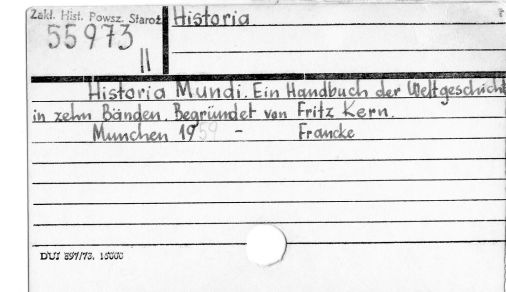 Zakł. Hist. Powsz. Staroż.
Historia
55973
II
Historia Mundi. Ein Handbuch der Weltgeschicht
in zehn Bänden. Begründet von Fritz Kern.
Munchen 1959 - Francke
DUJ 897/73. 15000